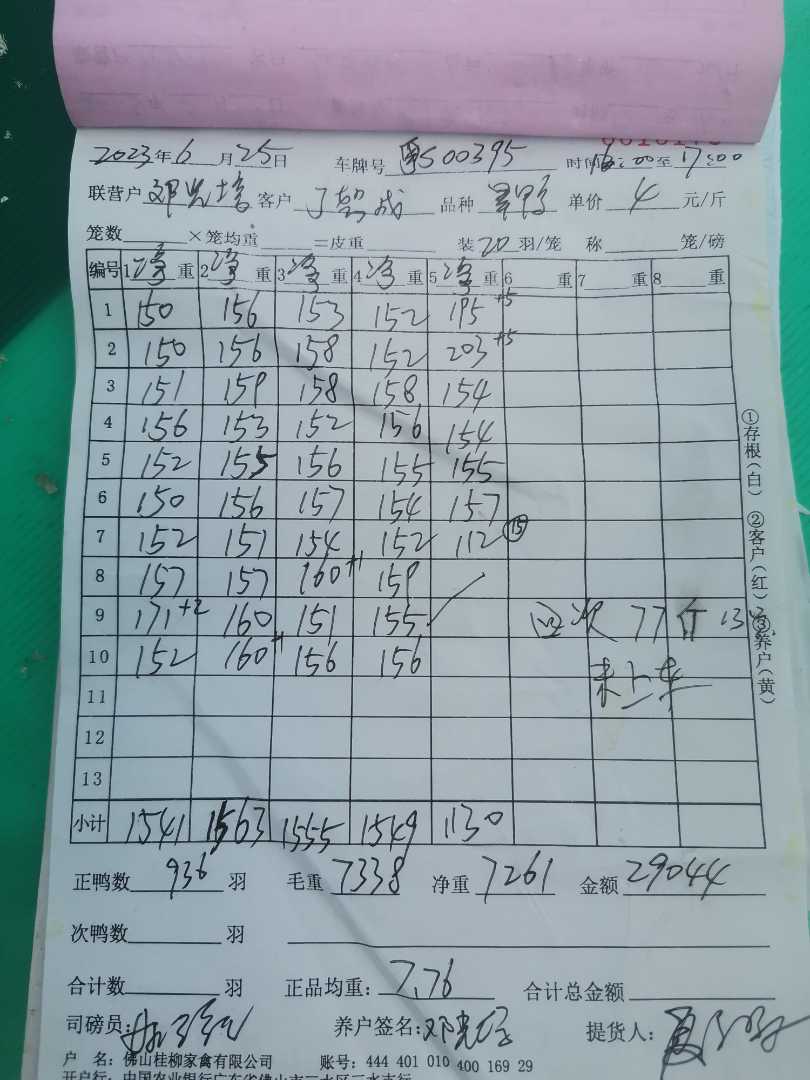 2023年6月25日 车牌号 粤S00395 时间 :00至17:00
联营户 邓 培 客户 丁 成 品种 单价 4 元/斤
笼数 ×笼均重 =皮重 装20羽/笼 称 笼/磅
编号 1净重 2净重 3净重 4净重 5净重 6 重 7 重 8 重
1 150 156 153 152 195+5
2 150 156 158 152 203+5
3 151 159 158 158 154
4 156 153 152 156 154
5 152 155 156 155 155
6 150 156 157 154 157
7 152 151 154 152 112 ⑮
8 157 157 160+1 159
9 171+2 160 151 155 次77斤
10 152 160+1 156 156 未上车
11
12
13
小计 1541 1563 1555 1549 1130
①存根(白) ②客户(红) ③养户(黄)
正鸭数 936 羽 毛重 7338 净重 7261 金额 29044
次鸭数 羽
合计数 羽 正品均重: 7.76 合计总金额
司磅员: 养户签名: 邓 培 提货人:
户 名: 佛山桂柳家禽有限公司 账号: 444 401 010 400 169 29
开户行: 中国农业银行广东省佛山市三水区三水支行